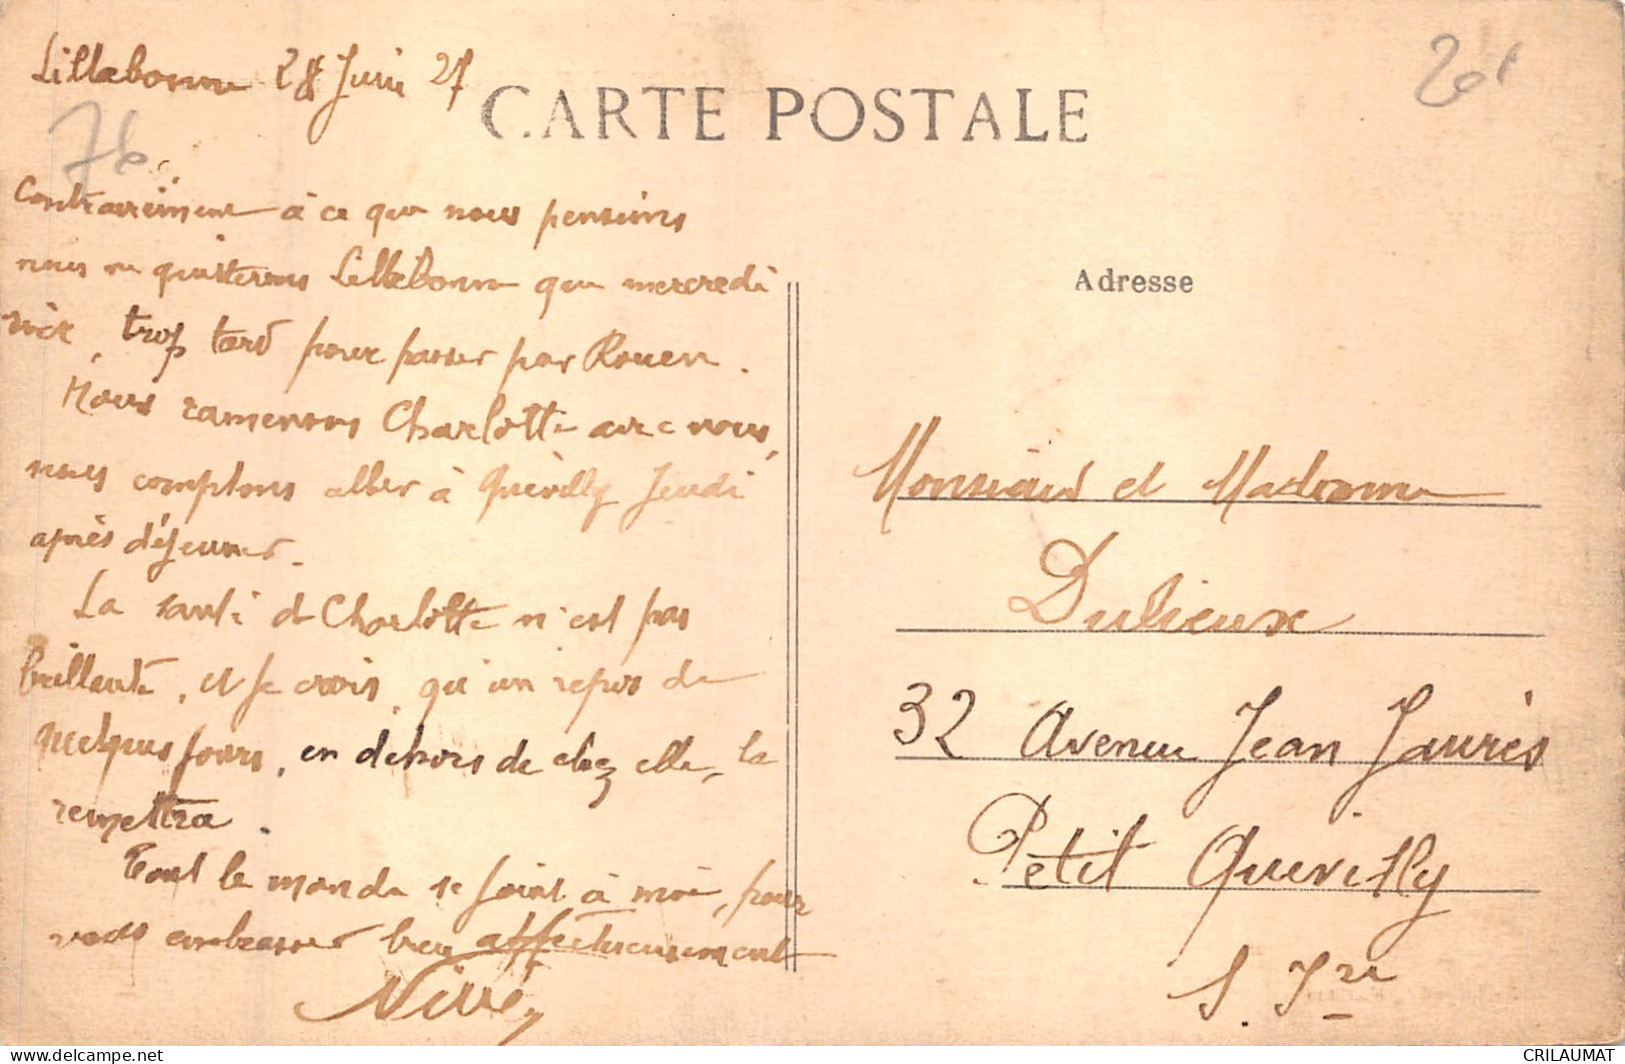 Lillebonne 28 Juin 27
CARTE POSTALE
201
76
Contrairement à ce que nous pensions
nous ne quitterons Lillebonne que mercredi
soir, trop tard pour passer par Rouen.
Nous ramenons Charlotte avec nous,
nous comptons aller à Quévilly Jeudi
après déjeuner.
La santé de Charlotte n'est pas
brillante, et je crois, qu'un repos de
quelques jours, en dehors de chez elle, la
remettra.
Tout le monde se joint à moi, pour
vous embrasser bien affectueusement
Adresse
Monsieur et Madame
Dulieux
32 Avenue Jean Jaurès
Petit Quevilly
S. Ire
CRILAUMAT